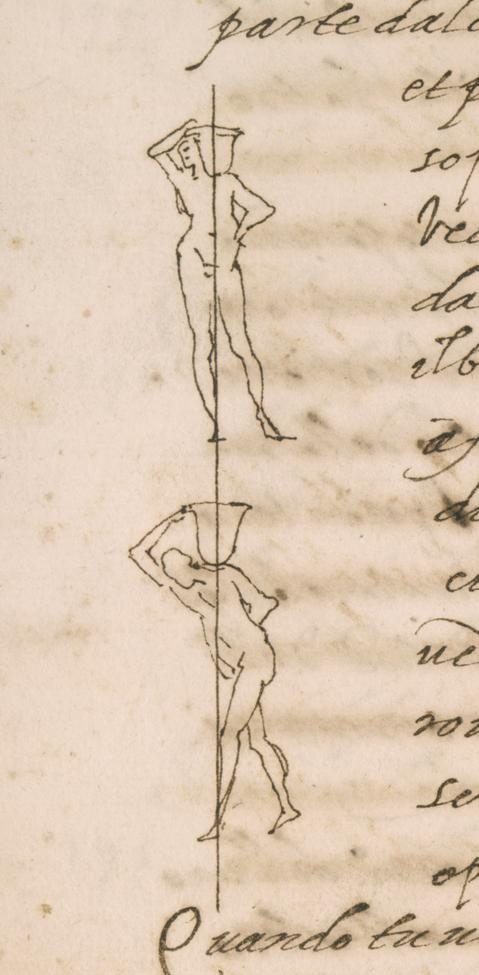 parte dal c
et p
sop
Ved
da
il b
à s
da
cu
ue
ron
se
op
Quando tu u